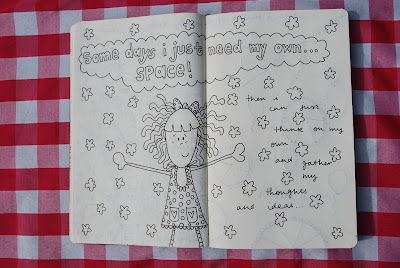 Some days i just need my own...
SPACE!
then i
can just
think on my
own
and gather
my
thoughts
and ideas...